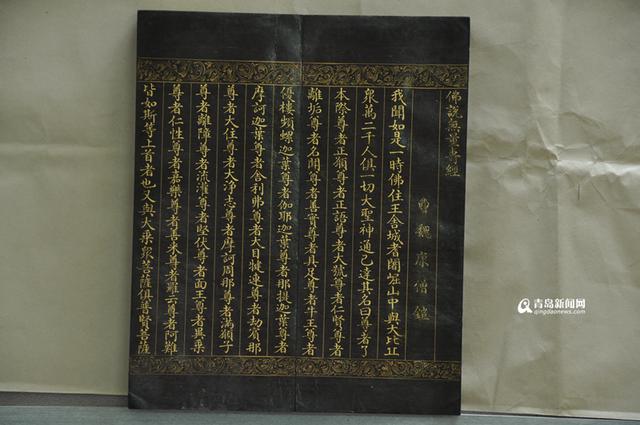 佛說無量壽經
曹魏康僧鎧
我聞如是一時佛住王舍城耆闍崛山中與大比丘
衆萬二千人俱一切大聖神通已達其名曰尊者了
本際尊者正願尊者正語尊者大號尊者仁賢尊者
離垢尊者名聞尊者善實尊者具足尊者牛王尊者
優樓頻螺迦葉尊者伽耶迦葉尊者那提迦葉尊者
摩訶迦葉尊者舍利弗尊者大目揵連尊者劫賓那
尊者大住尊者大淨志尊者摩訶周那尊者滿願子
尊者離障尊者流灌尊者堅伏尊者面王尊者異乘
尊者仁性尊者嘉樂尊者善來尊者羅云尊者阿難
皆如斯等上首者也又與大乘衆菩薩俱普賢菩薩
青岛新闻网
qingdaonews.com